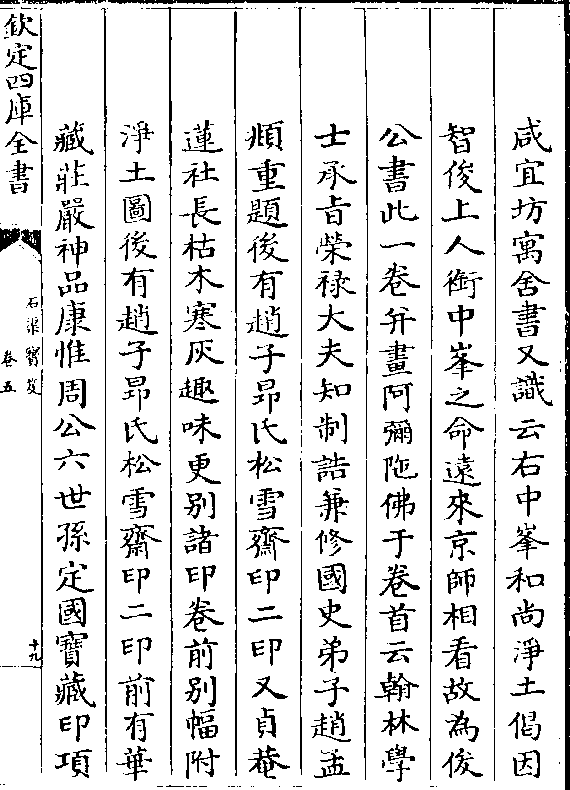 咸宜坊寓舍書又識云右中峯和尚淨土偈因
智俊上人銜中峯之命遠來京師相看故為俊
公書此一卷并畫阿彌陁佛于卷首云翰林學
士承旨榮禄大夫知制誥兼修國史弟子趙孟
頫重題後有趙子昻氏松雪齋印二印又貞菴
蓮社長枯木寒灰趣味更别諸印卷前别幅附
淨土圖後有趙子昻氏松雪齋印二印前有華
藏莊嚴神品康惟周公六世孫定國寶藏印項
欽定四庫全書
石渠寳笈
卷五
十九